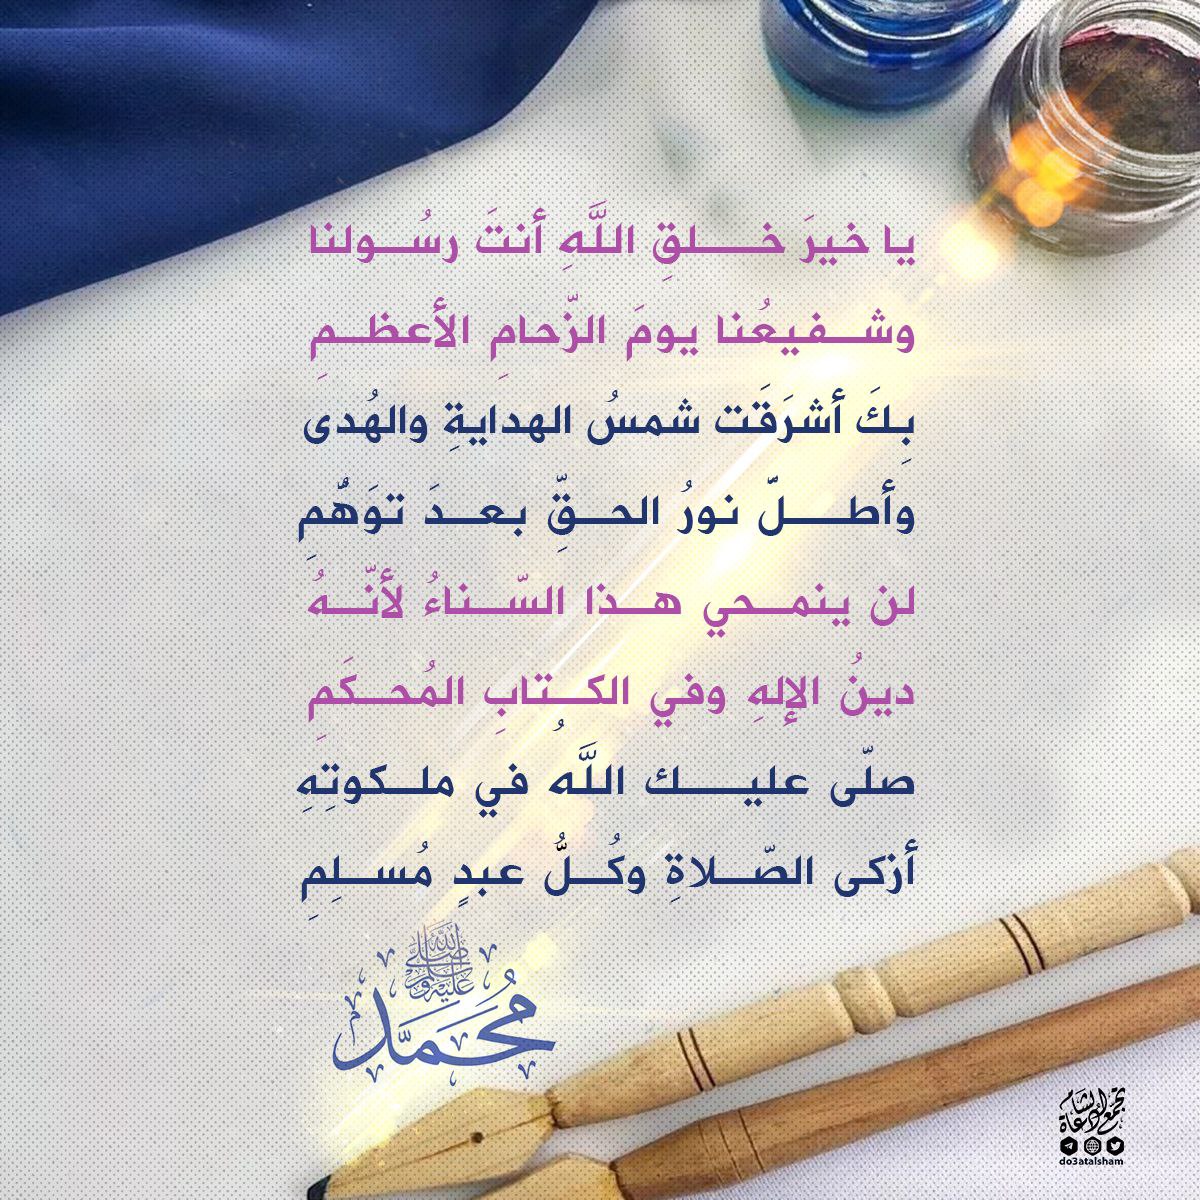 يا خيرَ خـــلقِ اللَّهِ أنتَ رسُــولنا
وشــفيعُنا يومَ الزّحامِ الأعظــمِ
بِكَ أشرَقَت شمسُ الهدايةِ والهُدى
وأطــــلّ نورُ الحــقِّ بعــدَ توَهُّمِ
لن ينمــحي هــذا السّــناءُ لأنّــهُ
دينُ الإلهِ وفي الكــتابِ المُحــكَمِ
صلّى عليـــــك اللَّهُ في ملــكوتِهِ
أزكى الصّــلاةِ وكُــلُّ عبدٍ مُســلِمِ
صلى الله عليه وسلم
مُحَمَّد
تجمع دعاة الشام
do3atalsham